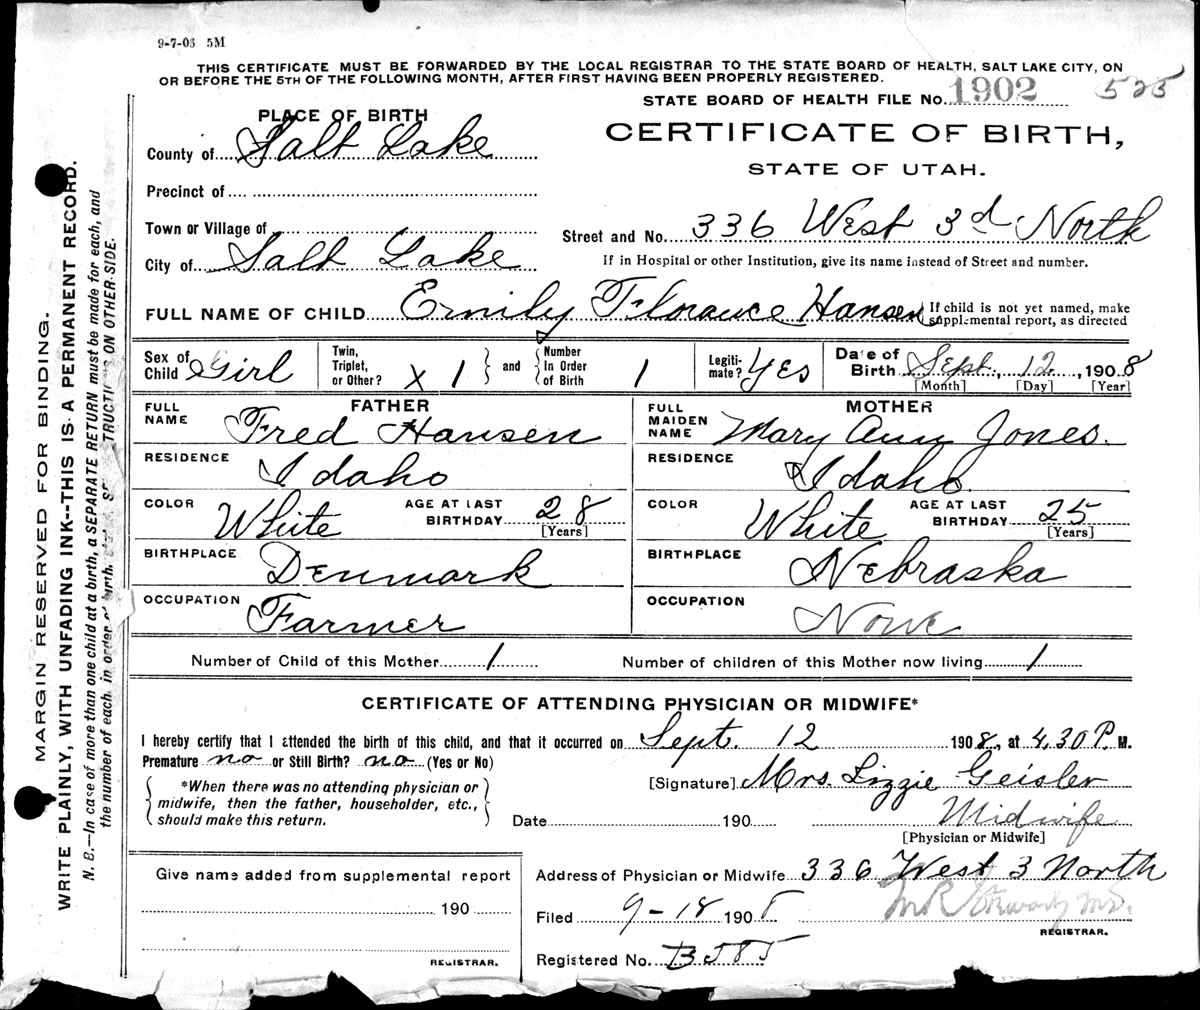 9-7-08 5M
THIS CERTIFICATE MUST BE FORWARDED BY THE LOCAL REGISTRAR TO THE STATE BOARD OF HEALTH, SALT LAKE CITY, ON
OR BEFORE THE 5TH OF THE FOLLOWING MONTH, AFTER FIRST HAVING BEEN PROPERLY REGISTERED.
STATE BOARD OF HEALTH FILE No. 1902 525
PLACE OF BIRTH
CERTIFICATE OF BIRTH,
STATE OF UTAH.
County of Salt Lake
Precinct of
Town or Village of
City of Salt Lake
Street and No. 336 West 3d North
If in Hospital or other Institution, give its name instead of Street and number.
FULL NAME OF CHILD Emily Florance Hansen { If child is not yet named, make supplemental report, as directed
Sex of Child Girl Twin, Triplet, or Other? X 1 } and { Number in Order of Birth 1 Legiti-mate? Yes Date of Birth Sept. 12, 1908
[Month] [Day] [Year]
FATHER MOTHER
FULL NAME Fred Hansen FULL MAIDEN NAME Mary Ann Jones.
RESIDENCE Idaho RESIDENCE Idaho
COLOR White AGE AT LAST BIRTHDAY 28 [Years] COLOR White AGE AT LAST BIRTHDAY 25 [Years]
BIRTHPLACE Denmark BIRTHPLACE Nebraska
OCCUPATION Farmer OCCUPATION None
Number of Child of this Mother 1 Number of children of this Mother now living 1
CERTIFICATE OF ATTENDING PHYSICIAN OR MIDWIFE*
I hereby certify that I attended the birth of this child, and that it occurred on Sept. 12 1908, at 4.30 P. M.
Premature no or Still Birth? no (Yes or No)
*When there was no attending physician or
midwife, then the father, householder, etc.,
should make this return.
[Signature] Mrs. Lizzie Geisler
Date 190 Midwife
[Physician or Midwife]
Give name added from supplemental report
190
REGISTRAR.
Address of Physician or Midwife 336 West 3 North
Filed 9-18 190
REGISTRAR.
Registered No.
MARGIN RESERVED FOR BINDING.
WRITE PLAINLY, WITH UNFADING INK--THIS IS A PERMANENT RECORD.
N. B.—In case of more than one child at a birth, a SEPARATE RETURN must be made for each, and
the number of each, in order of birth, ON OTHER SIDE.